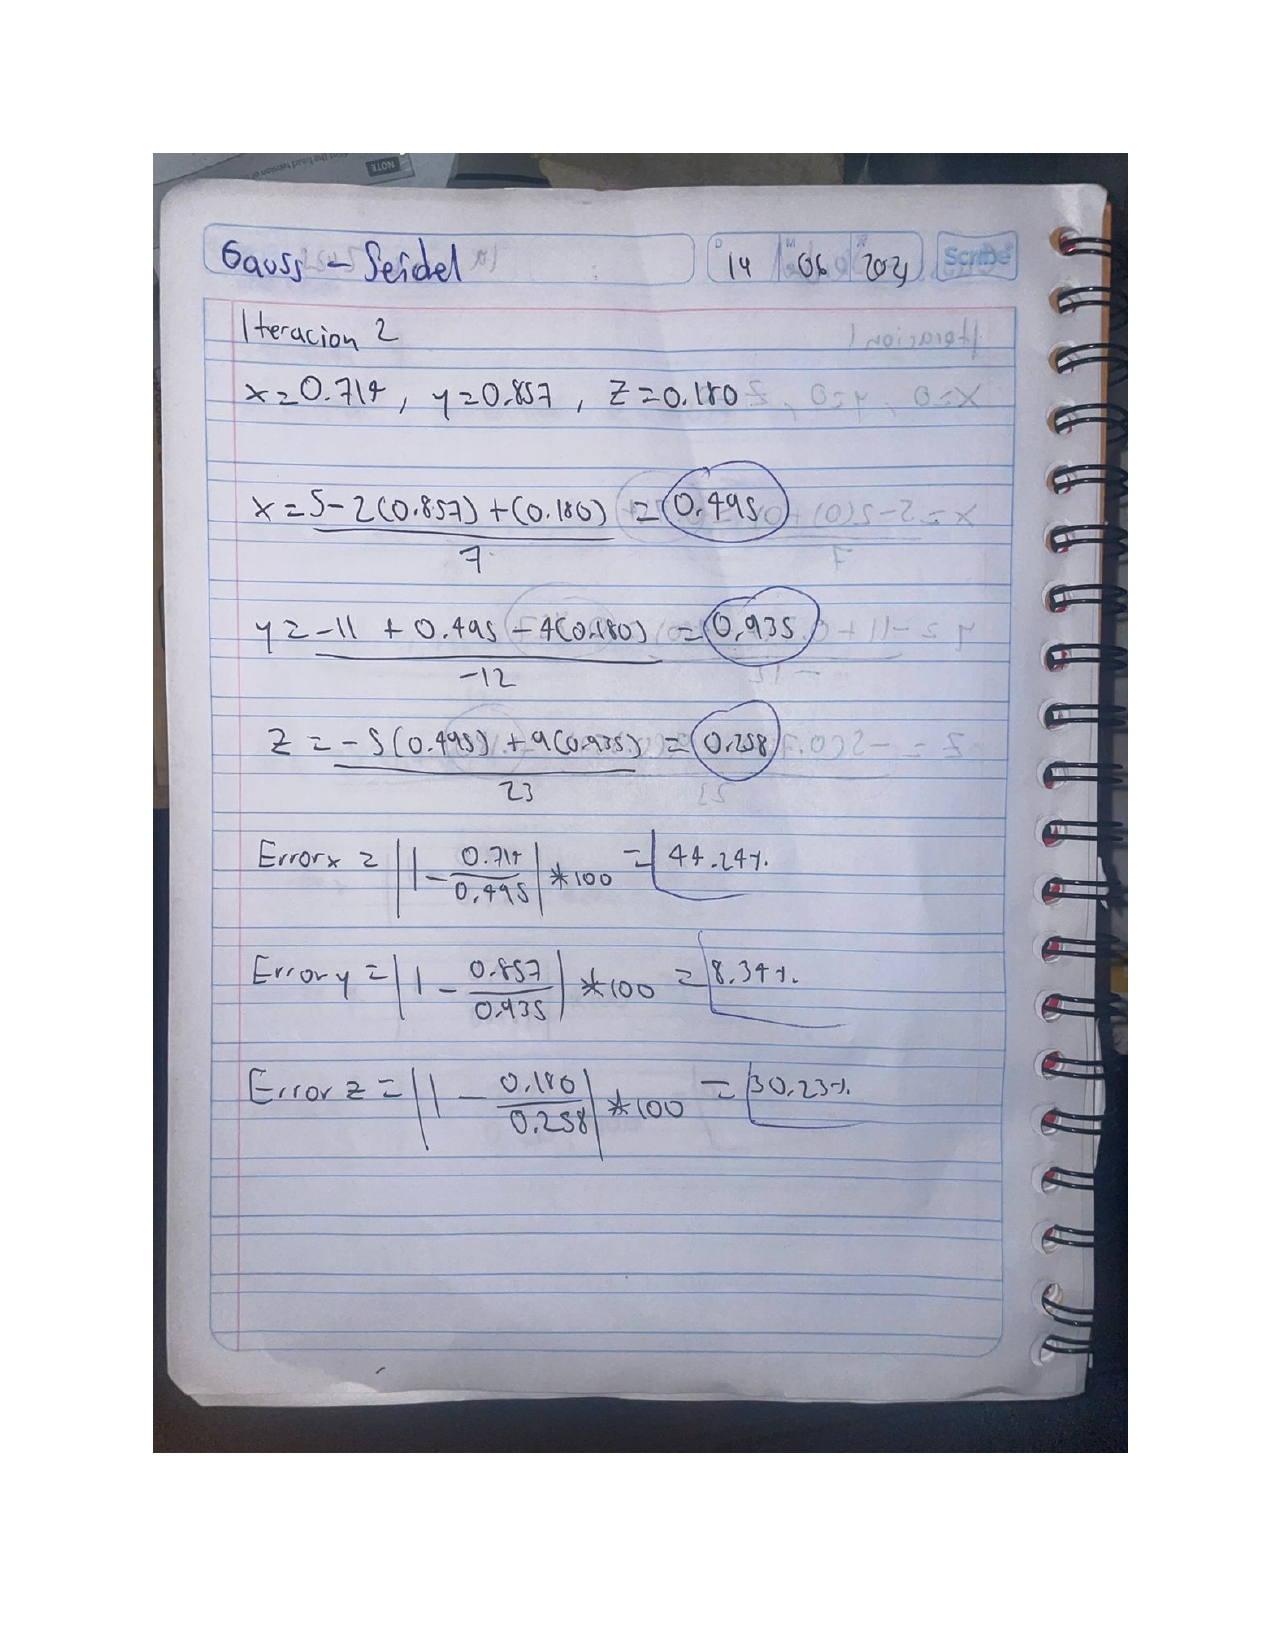 Gauss - Seidel
D 14 M 06 A 2021
Scribe
Iteracion 2
x=0.714, y=0.857, z=0.180
x = 5-2(0.857)+(0.180) = 0.495
7
y = -11 + 0.495 - 4(0.180) = 0.935
-12
z = -5(0.495) + 9(0.935) = 0.258
23
Error x = |1 - 0.714 / 0.495| * 100 = 44.24%
Error y = |1 - 0.857 / 0.935| * 100 = 8.34%
Error z = |1 - 0.180 / 0.258| * 100 = 30.23%
NOTE